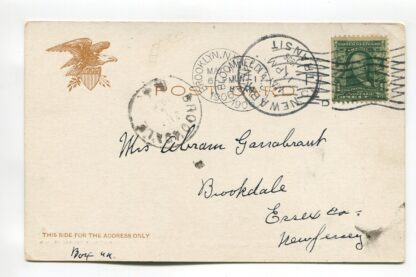 BROOKLYN, N.Y.
NEWARK
TRANSIT
POST CARD
BROOKDALE
Mrs Abram Garrabrant
Brookdale
Essex Co.
New Jersey
THIS SIDE FOR THE ADDRESS ONLY
Box